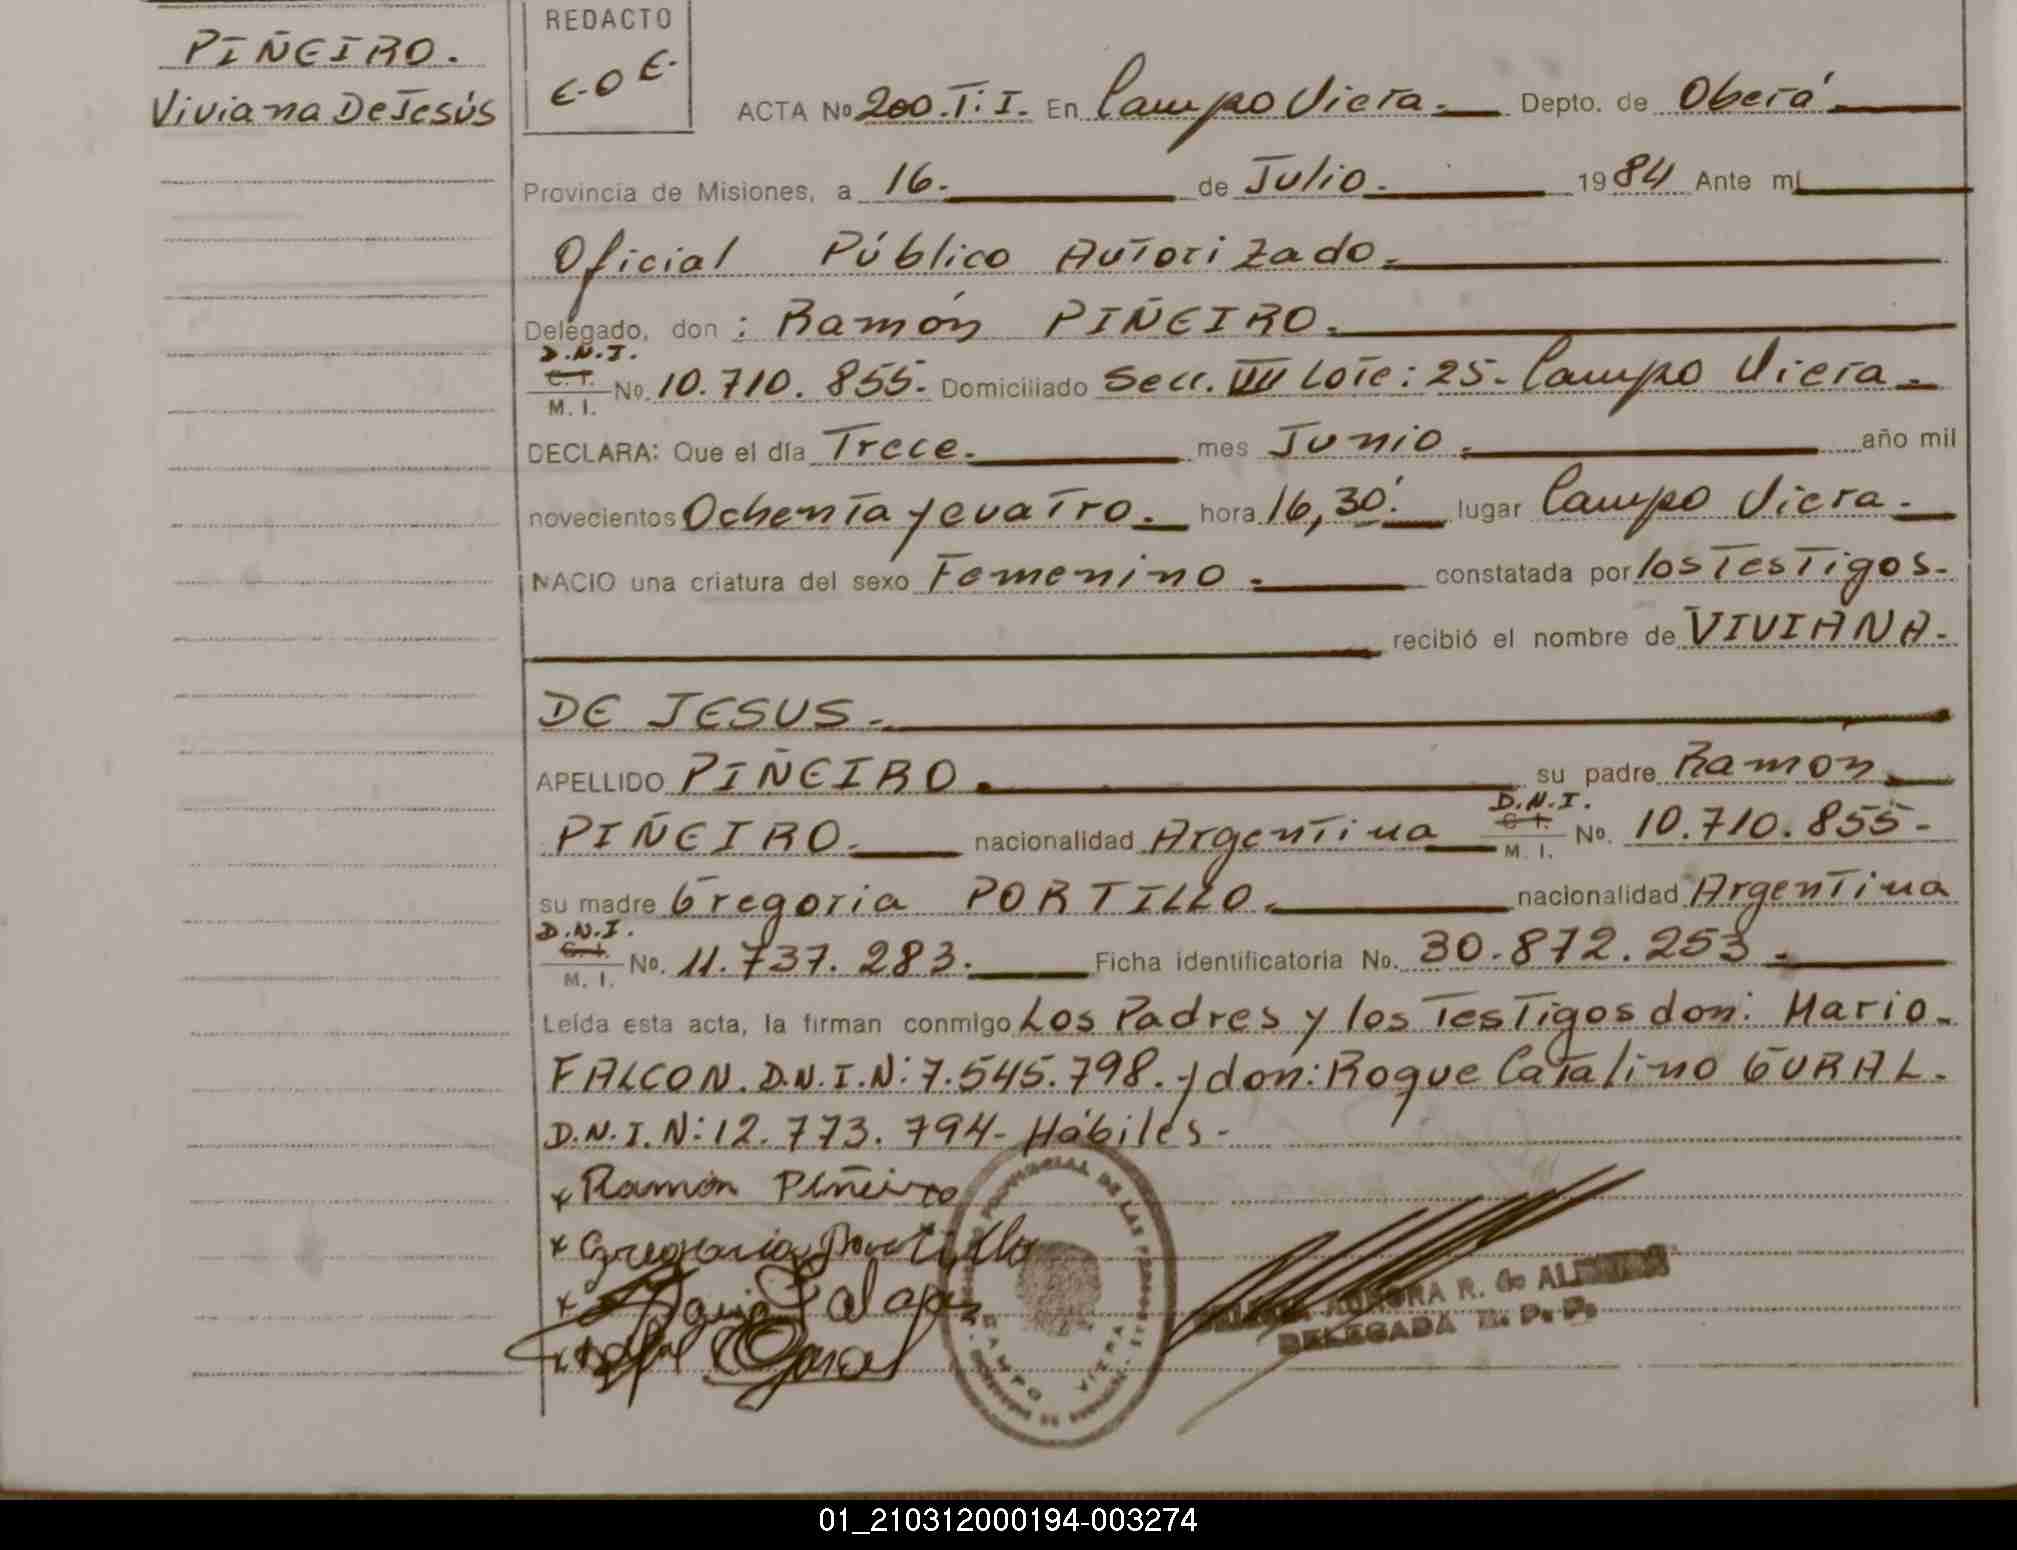 PIÑEIRO.
Viviana De Jesús
REDACTO
E.O E.
ACTA No 200.T:I. En Campo Viera. Depto. de Oberá
Provincia de Misiones, a 16. de Julio. 1984 Ante mí
Oficial Público Autorizado.
Delegado, don : Ramón PIÑEIRO.
D.N.I.
C. I. No. 10.710.855. Domiciliado Secc. VIII Lote: 25. Campo Viera.
M. I.
DECLARA: Que el día Trece. mes Junio. año mil
novecientos Ochenta y cuatro. hora 16,30'. lugar Campo Viera.
NACIO una criatura del sexo Femenino. constatada por los Testigos.
recibió el nombre de VIVIANA.
DE JESUS.
APELLIDO PIÑEIRO. su padre Ramon
D.N.I.
PIÑEIRO. nacionalidad Argentina C. I. No. 10.710.855.
M. I.
su madre Gregoria PORTILLO. nacionalidad Argentina
D.N.I.
C. I. No. 11.737.283. Ficha identificatoria No. 30.872.253.
M. I.
Leída esta acta, la firman conmigo Los Padres y los Testigos don: Mario.
FALCON. D.N.I.N: 7.545.798. y don: Roque Catalino GURAL.
D.N.I.N: 12.773.794. Hábiles.
x Ramón Piñeiro
x Gregoria Portillo
x
x
PROVINCIAL DE LAS PERSONAS
CAMPO VIERA
AURORA R. de
DELEGADA R. P. P.
01_210312000194-003274